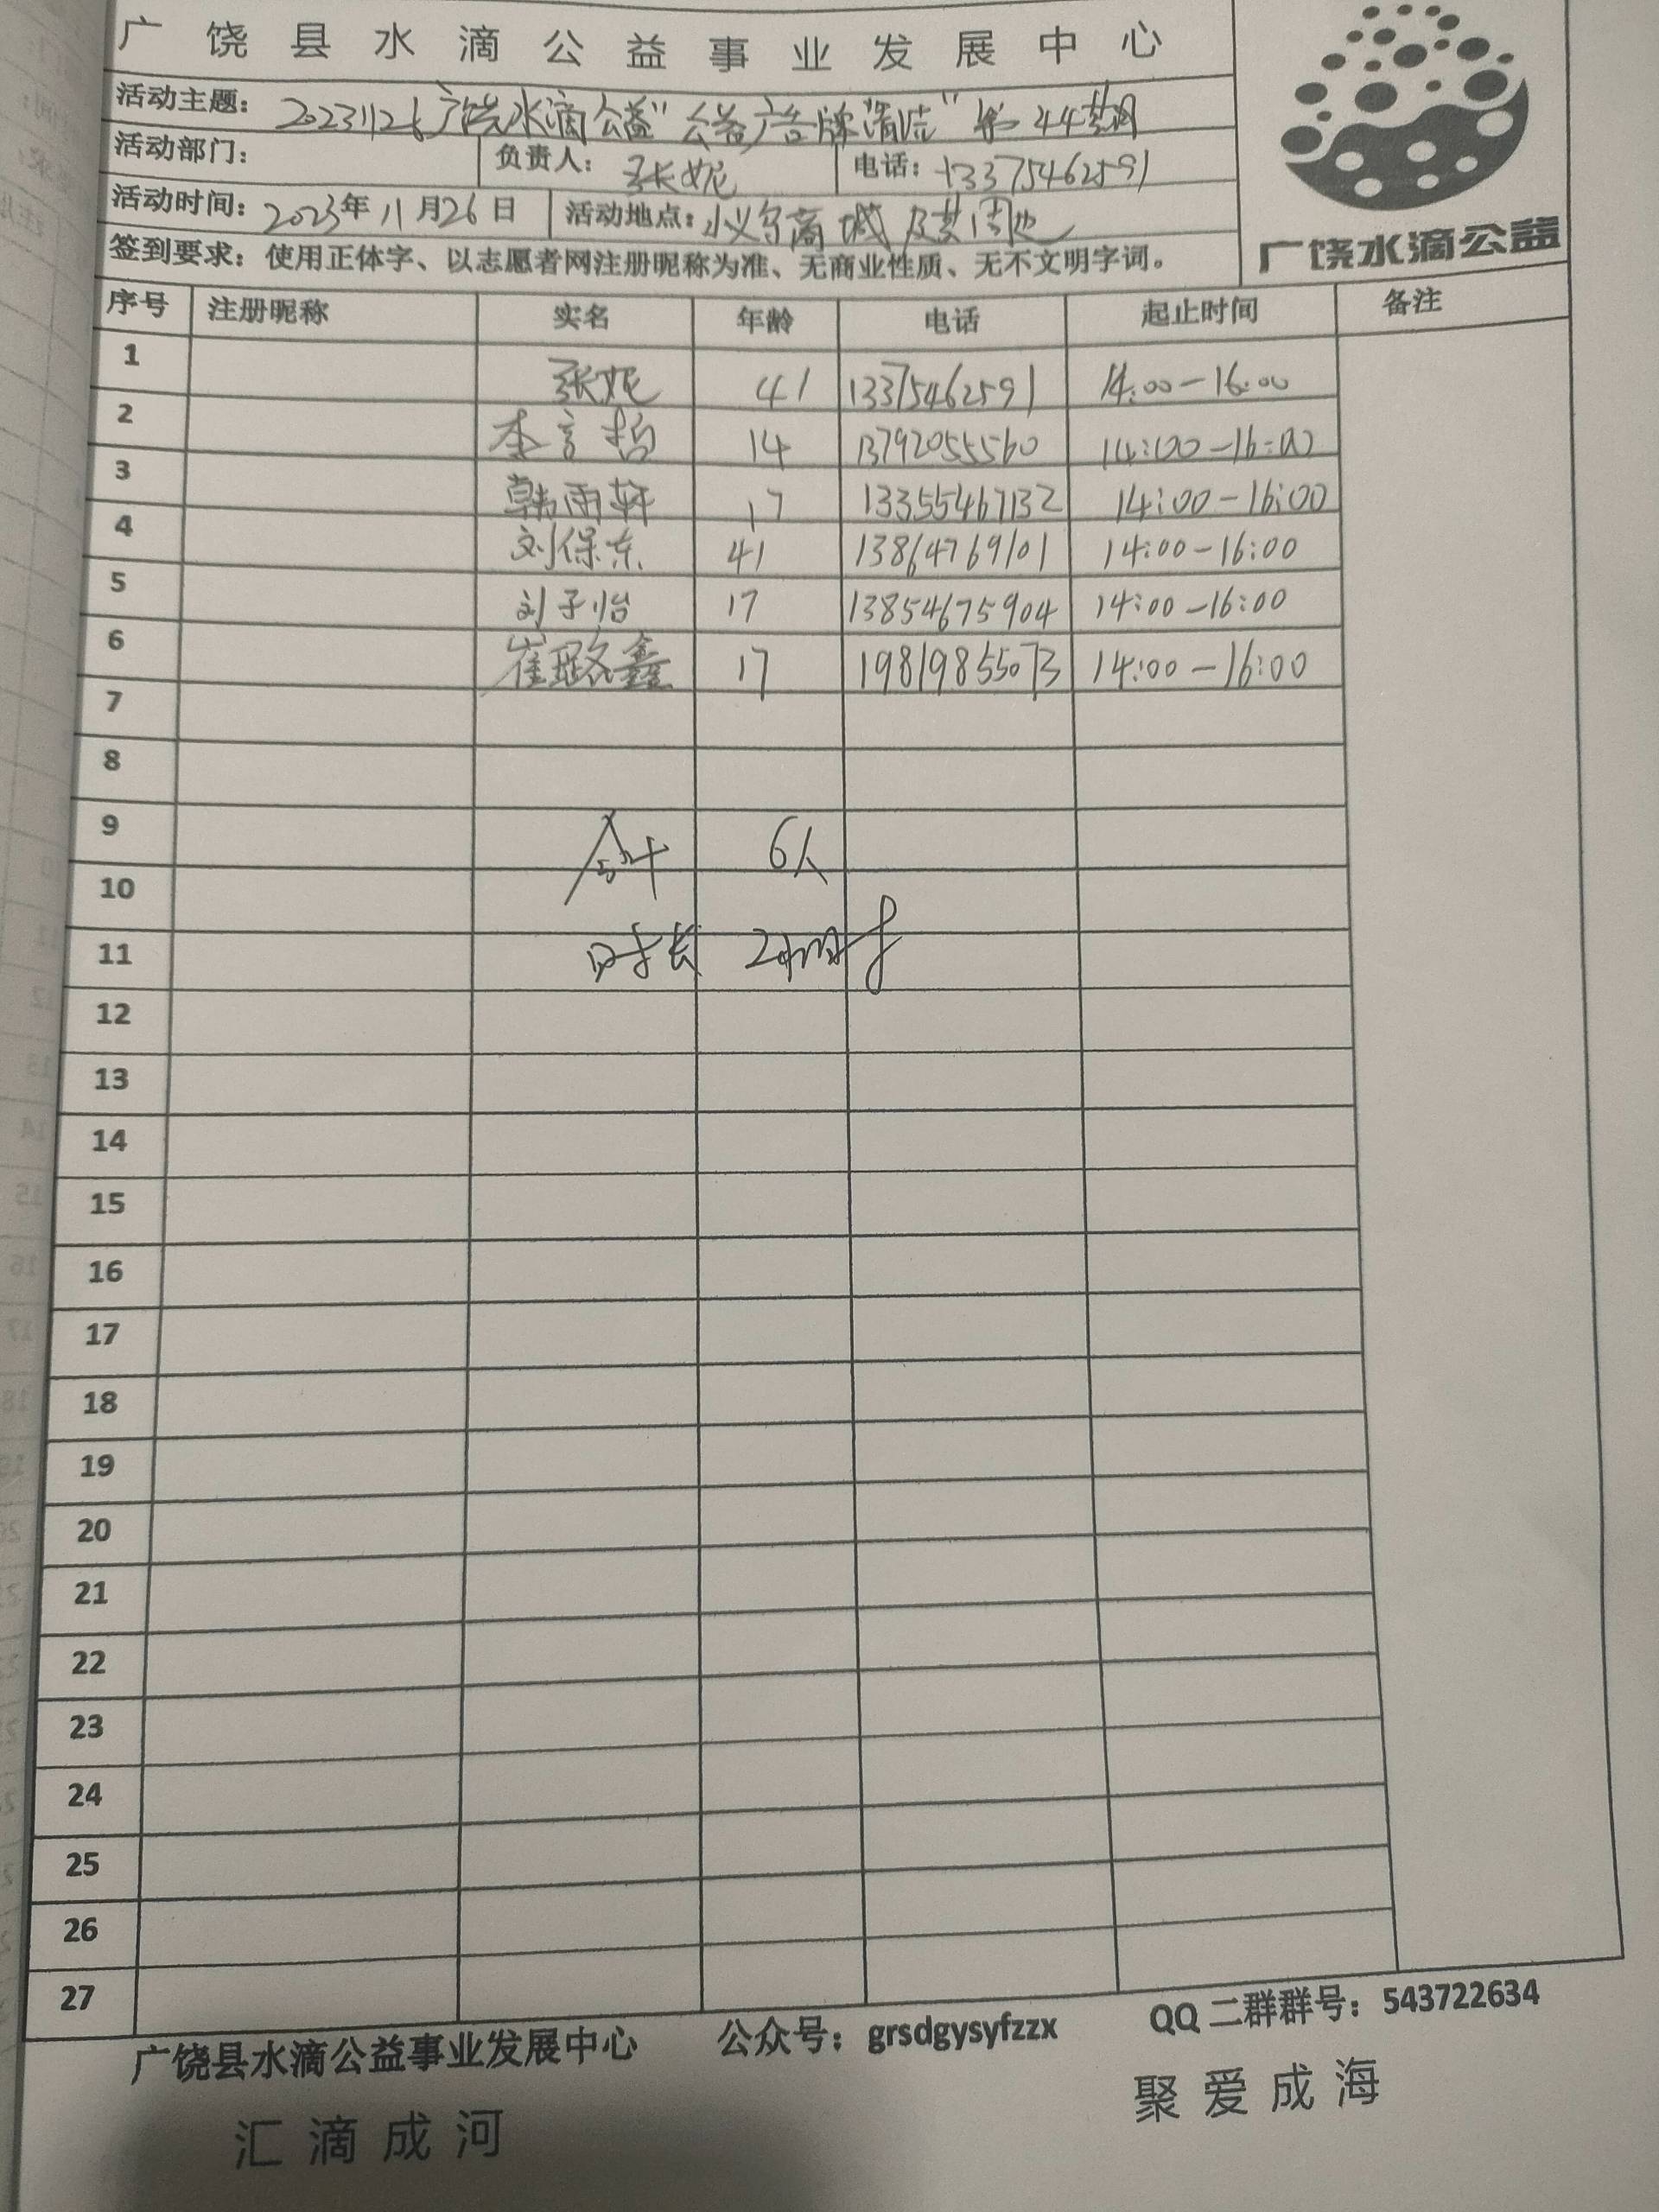 广饶县水滴公益事业发展中心
活动主题：20231126广饶水滴公益"公益广告牌清洁"第44期
活动部门： 负责人：张妮 电话：13375462591
活动时间：2023年11月26日 活动地点：小义乌商城及其周边
签到要求：使用正体字、以志愿者网注册昵称为准、无商业性质、无不文明字词。
广饶水滴公益
序号 注册昵称 实名 年龄 电话 起止时间 备注
1 张妮 41 13375462591 14:00-16:00
2 李言哲 14 13792055560 14:00-16:00
3 韩雨轩 17 13355467132 14:00-16:00
4 刘保东 41 13864769101 14:00-16:00
5 刘子怡 17 13854675904 14:00-16:00
6 崔璐鑫 17 19819855073 14:00-16:00
7
8
9 合计 6人
10
11 时长 2小时
12
13
14
15
16
17
18
19
20
21
22
23
24
25
26
27
广饶县水滴公益事业发展中心 公众号：grsdgysyfzzx QQ二群群号：543722634
汇滴成河 聚爱成海